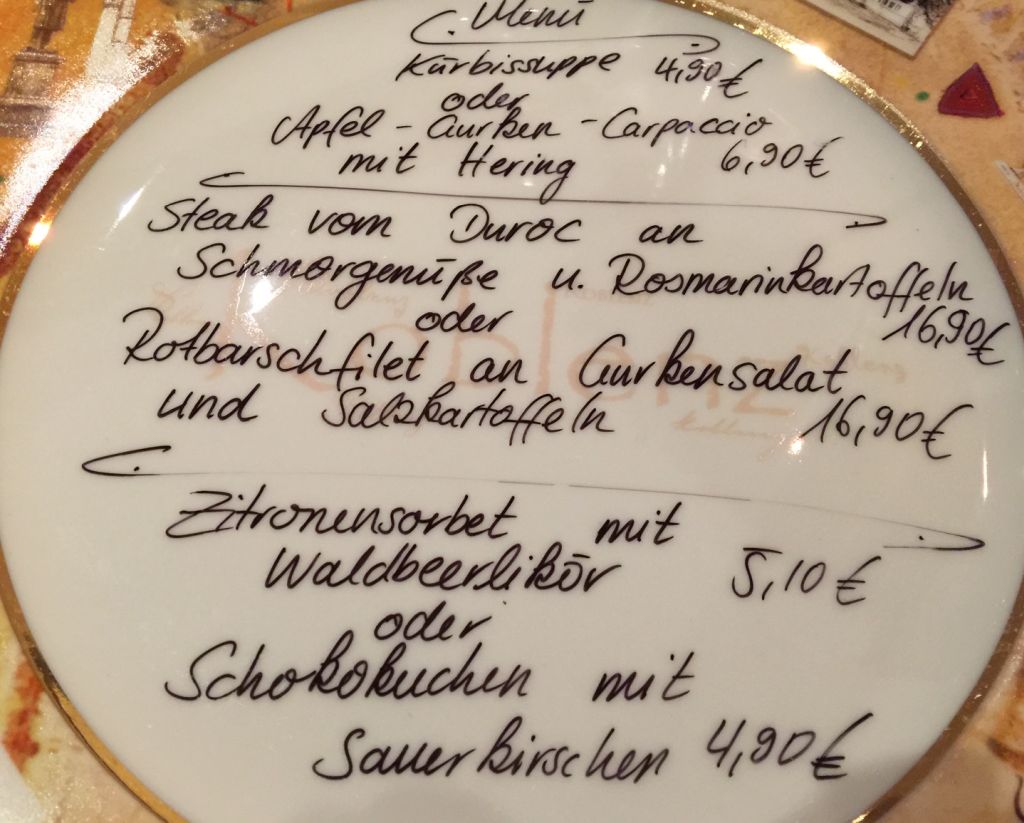 Menü
Kürbissuppe 4,90€
oder
Apfel - Gurken - Carpaccio
mit Hering 6,90€
Steak vom Duroc an
Schmorgemüße u. Rosmarinkartoffeln
16,90€
oder
Rotbarschfilet an Gurkensalat
und Salzkartoffeln 16,90€
Zitronensorbet mit
Waldbeerlikör 5,10€
oder
Schokokuchen mit
Sauerkirschen 4,90€
Koblenz